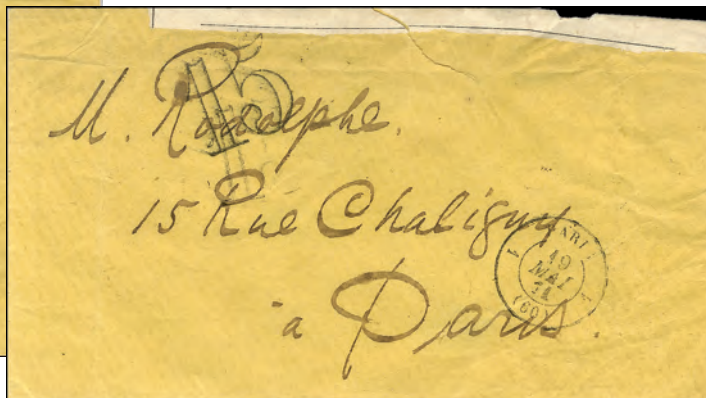 15
M. Rodolphe.
15 Rue Chaligny
à Paris.
19
MAI
71
(60)